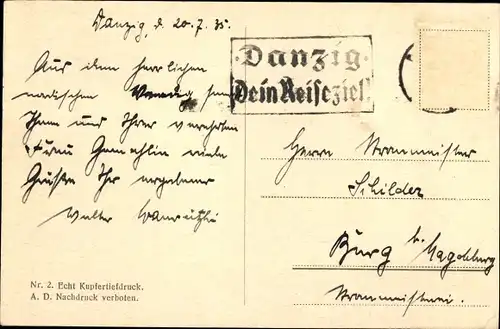 Danzig, d. 20.7.35.
Aus dem herrlichen
nordischen Venedig
Ihnen und Ihrer verehrten
Frau Gemahlin viele
Grüße Ihr ergebener
Walter
Danzig
Dein Reiseziel!
Herrn
Schilder
Burg b. Magdeburg
Nr. 2. Echt Kupfertiefdruck.
A. D. Nachdruck verboten.